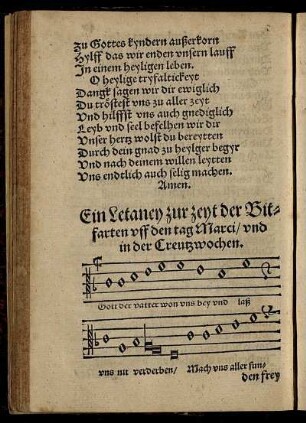 Zu Gottes kyndern außerkorn
Hylff das wir enden vnsern lauff
In einem heyligen leben.
O heylige tryfaltickeyt
Dangk sagen wir dir ewiglich
Du tröstest vns zu aller zeyt
Vnd hilffst vns auch gnediglich
Leyb vnd seel befelhen wir dir
Vnser hertz wolst du bereytten
Durch dein gnad zu heylger begyr
Vnd nach deinem willen leytten
Vns endtlich auch selig machen.
Amen.
Ein Letaney zur zeyt der Bit-
farten vff den tag Marci/ vnd
in der Creutzwochen.
Gott der vatter won vns bey vnd laß
vns nit verderben/ Mach vns aller sun-
den frey